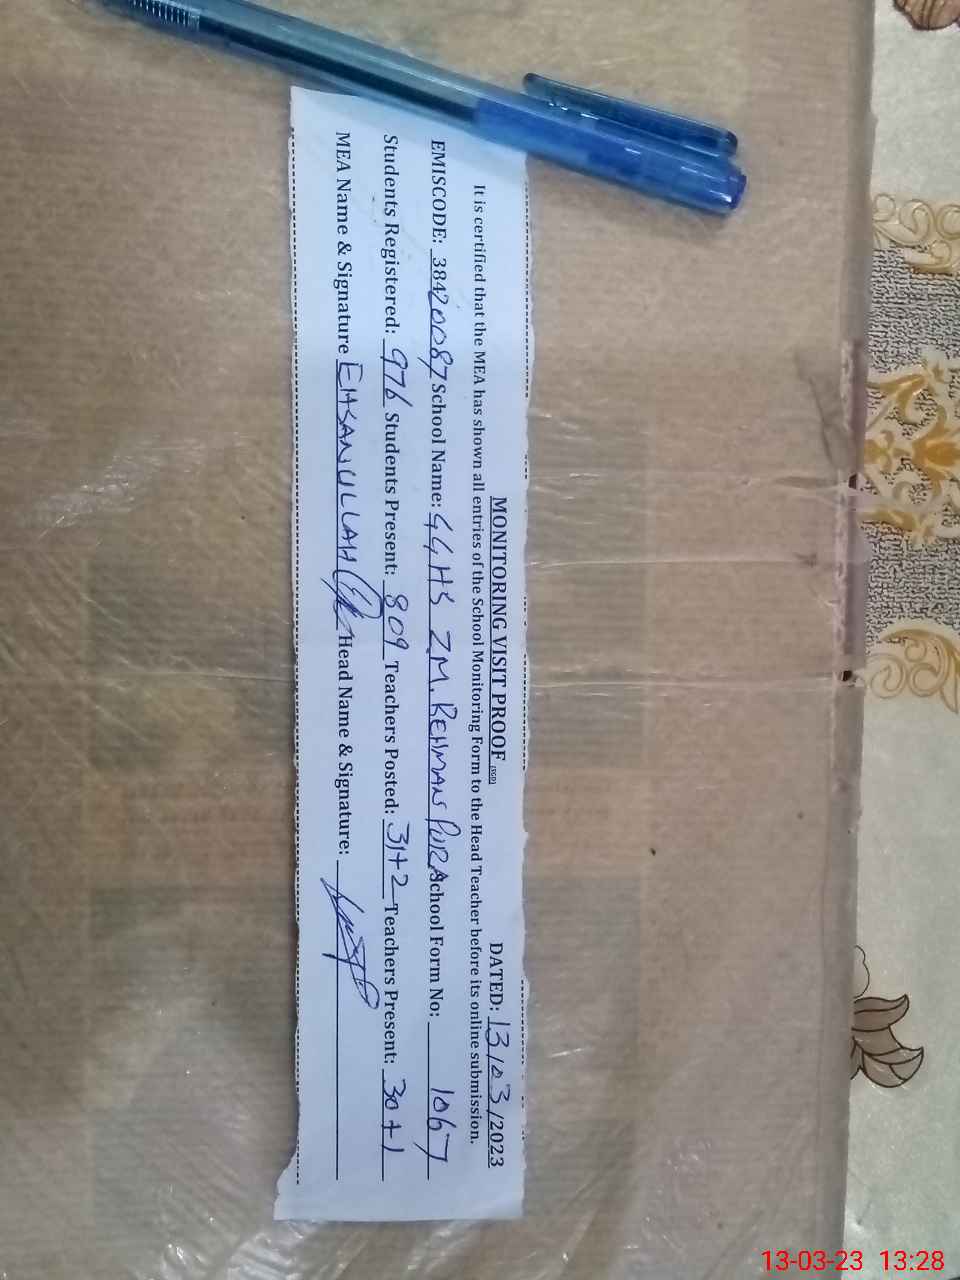 MONITORING VISIT PROOF (SGD) DATED: 13/03/2023
It is certified that the MEA has shown all entries of the School Monitoring Form to the Head Teacher before its online submission.
EMISCODE: 38420087 School Name: GGHS Z.M. REHMAN PURA School Form No: 1067
Students Registered: 976 Students Present: 809 Teachers Posted: 31+2 Teachers Present: 30+1
MEA Name & Signature EHSANULLAH Head Name & Signature:
13-03-23 13:28